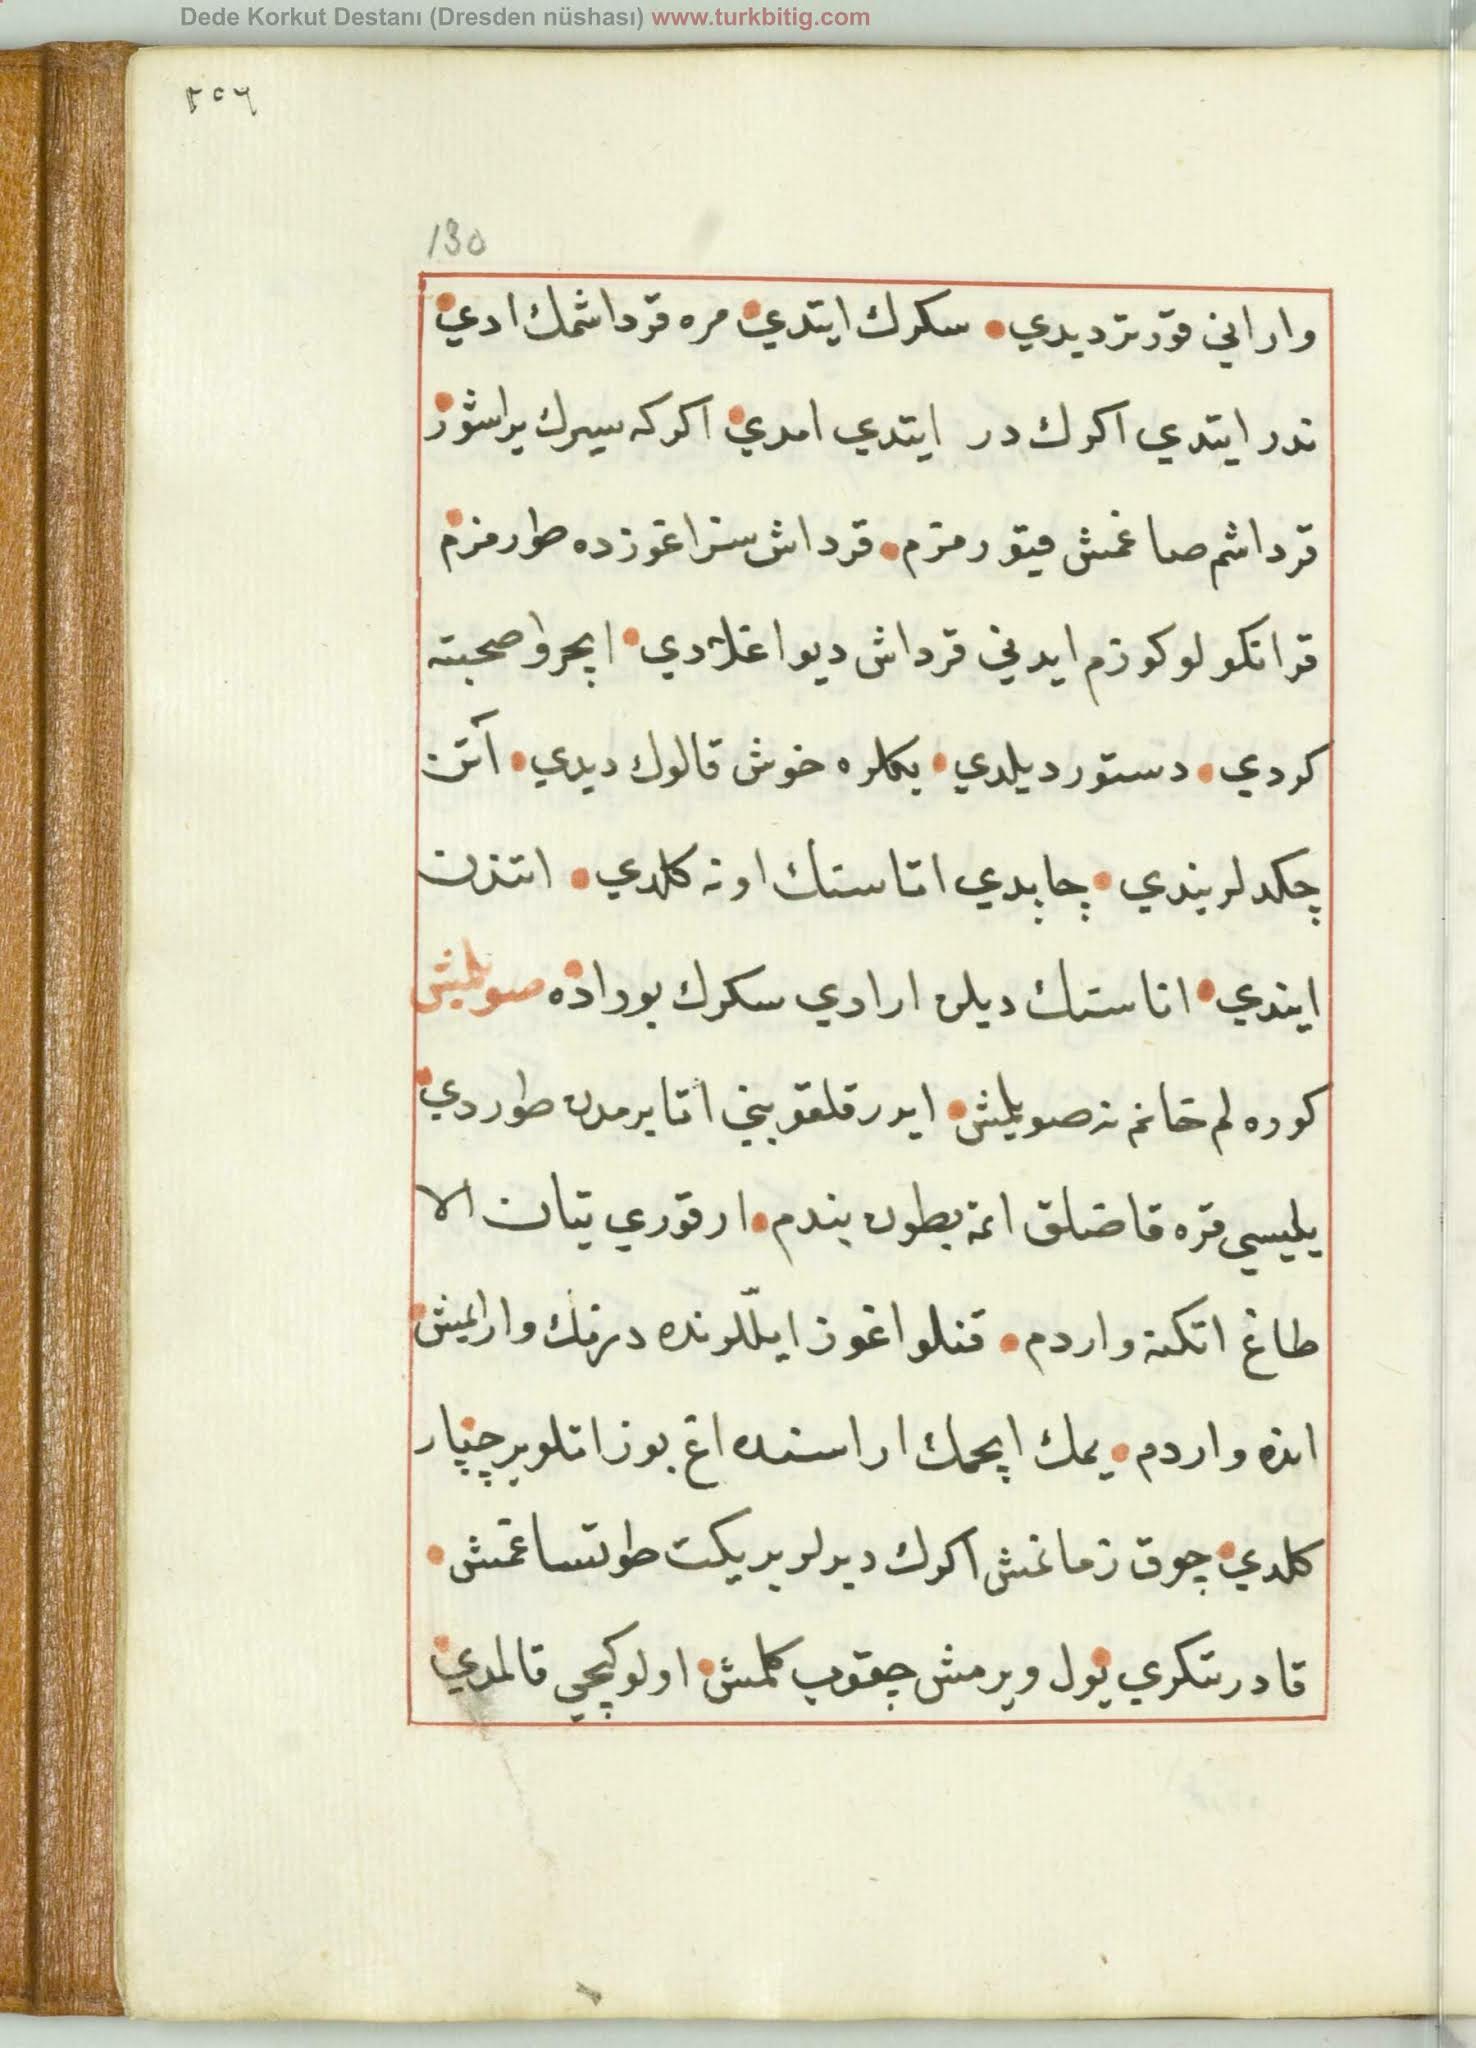 Dede Korkut Destanı (Dresden nüshası) www.turkbitig.com
٢٥٦
130
وار اني قورتر ديدي • سكرك ايتدي • مره قرداشمك ادي
ندر ايتدي اكرك در ايتدي امدي • اكركه سيرك يراشور
قرداشم صاغمش قيورمزم • قرداش سز اغوزده طورمزم
قرانكولو كوزم ايدني قرداش ديو اغلادي • ايچرو صحبته
كردي • دستور ديلدي • بكلره خوش قالوك ديدي • آتن
چكدلر بندي • چاپدي اناسنك اونه كلدي • اتندن
ايندي • اناسنك ديلن ارادي سكرك بوراده صويلمش
كوره لم خانم نه صويلمش • ايدر قلقوبني انا يرمدن طوردي
يليسي قره قاضلق اتمه بطون بندم • ارقوري يتان الا
طاغ اتكنه واردم • قنلو اغوز ايللرنده درنك وارايمش
انده واردم • يمك ايچمك اراسنده اغ بوز اتلو بر چپار
كلدي • چوق زمانمش اكرك ديرلر بر يكت طوتساغمش •
قادر تنكري يول ويرمش چقوب كلمش • اولو كچي قالمدي